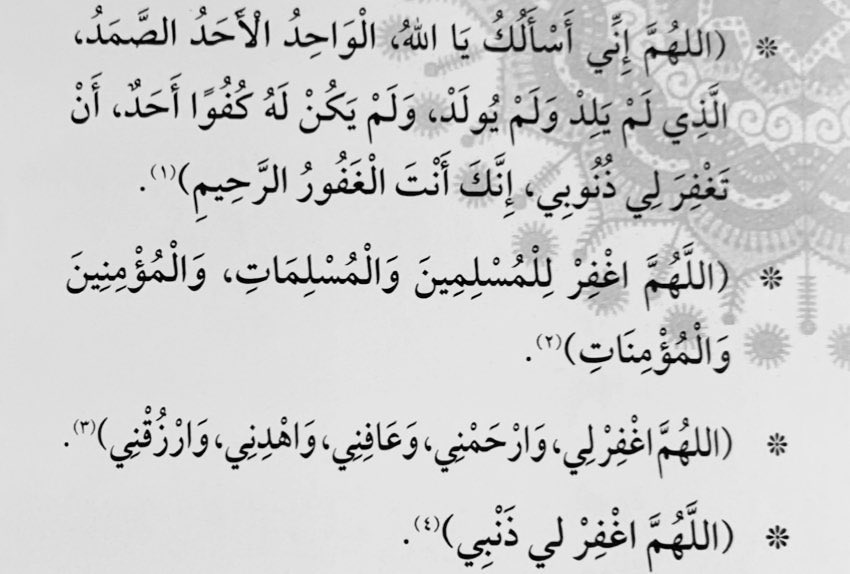 ❊ (اللهُمَّ إِنِّي أَسْأَلُكُ يَا اللهُ، الْوَاحِدُ الْأَحَدُ الصَّمَدُ،
الَّذِي لَمْ يَلِدْ وَلَمْ يُولَدْ، وَلَمْ يَكُنْ لَهُ كُفُوًا أَحَدٌ، أَنْ
تَغْفِرَ لِي ذُنُوبِي، إِنَّكَ أَنْتَ الْغَفُورُ الرَّحِيمِ)(١).
❊ (اللَّهُمَّ اغْفِرْ لِلْمُسْلِمِينَ وَالْمُسْلِمَاتِ، وَالْمُؤْمِنِينَ
وَالْمُؤْمِنَاتِ)(٢).
❊ (اللهُمَّ اغْفِرْ لِي، وَارْحَمْنِي، وَعَافِنِي، وَاهْدِنِي، وَارْزُقْنِي)(٣).
❊ (اللَّهُمَّ اغْفِرْ لي ذَنْبِي)(٤).